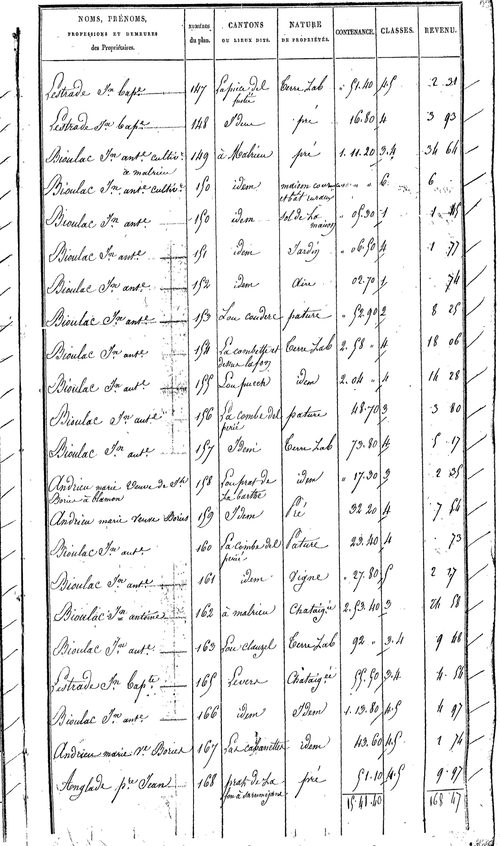 NOMS, PRÉNOMS, PROFESSIONS ET DEMEURES des Propriétaires. | NUMÉROS du plan. | CANTONS OU LIEUX DITS. | NATURE DE PROPRIÉTÉS. | CONTENANCE. | CLASSES. | REVENU.
Lestrade Jn Bapte 147 La pièce del Terre Lab " 51.40 4.5 2 31
Lestrade Jn Bapte 148 Idem pré 16.80 4 3 93
Bioulac Jn ante cultivr 149 à Malrieu pré 1.11.20 3.4 34 64
à malrieu
Bioulac Jn ante cultivr 150 idem maison cour 6 6
et bât ruraux
Bioulac Jn ante 150 idem sol de La 05.90 1 1
maison
Bioulac Jn ante 151 idem Jardin " 06.50 4 1 77
Bioulac Jn ante 152 idem aire 02.70 1 74
Bioulac Jn ante 153 Lou couderc pature " 52.90 2 8 25
Bioulac Jn ante 154 La combette et Terre Lab 2.58 " 4 18 06
Bioulac Jn ante 155 Lou puech idem 2.04 " 4 14 28
Bioulac Jn ante 156 La combe del pature 48.70 3 3 80
Bioulac Jn ante 157 Idem Terre Lab 73.80 4 5 17
Andrieu marie veuve de 158 Lou prat de idem " 17.30 3 2 35
Borie à blamon La barthe
Andrieu marie veuve Bories 159 Idem Pré 32 20 4 7 54
Bioulac Jn ante 160 La combe del Pature 23.40 4 73
Bioulac Jn ante 161 idem Vigne " 27.80 5 2 27
Bioulac Jn antoine 162 à malrieu Chataigie 2.53.40 3 24 58
Bioulac Jn ante 163 Lou clauzel Terre Lab 92 " 3.4 9 48
Lestrade Jn Bapte 165 Levers Chataigie 55.50 3.4 4.56
Bioulac Jn ante 166 idem Idem 1.13.80 4.5 4 97
Andrieu marie ve Bories 167 Las cabanettes idem 43.60 4.5 1 74
Anglade pre Jean 168 prat de La pré 51.10 4.5 9.97
15 41 40 163 47